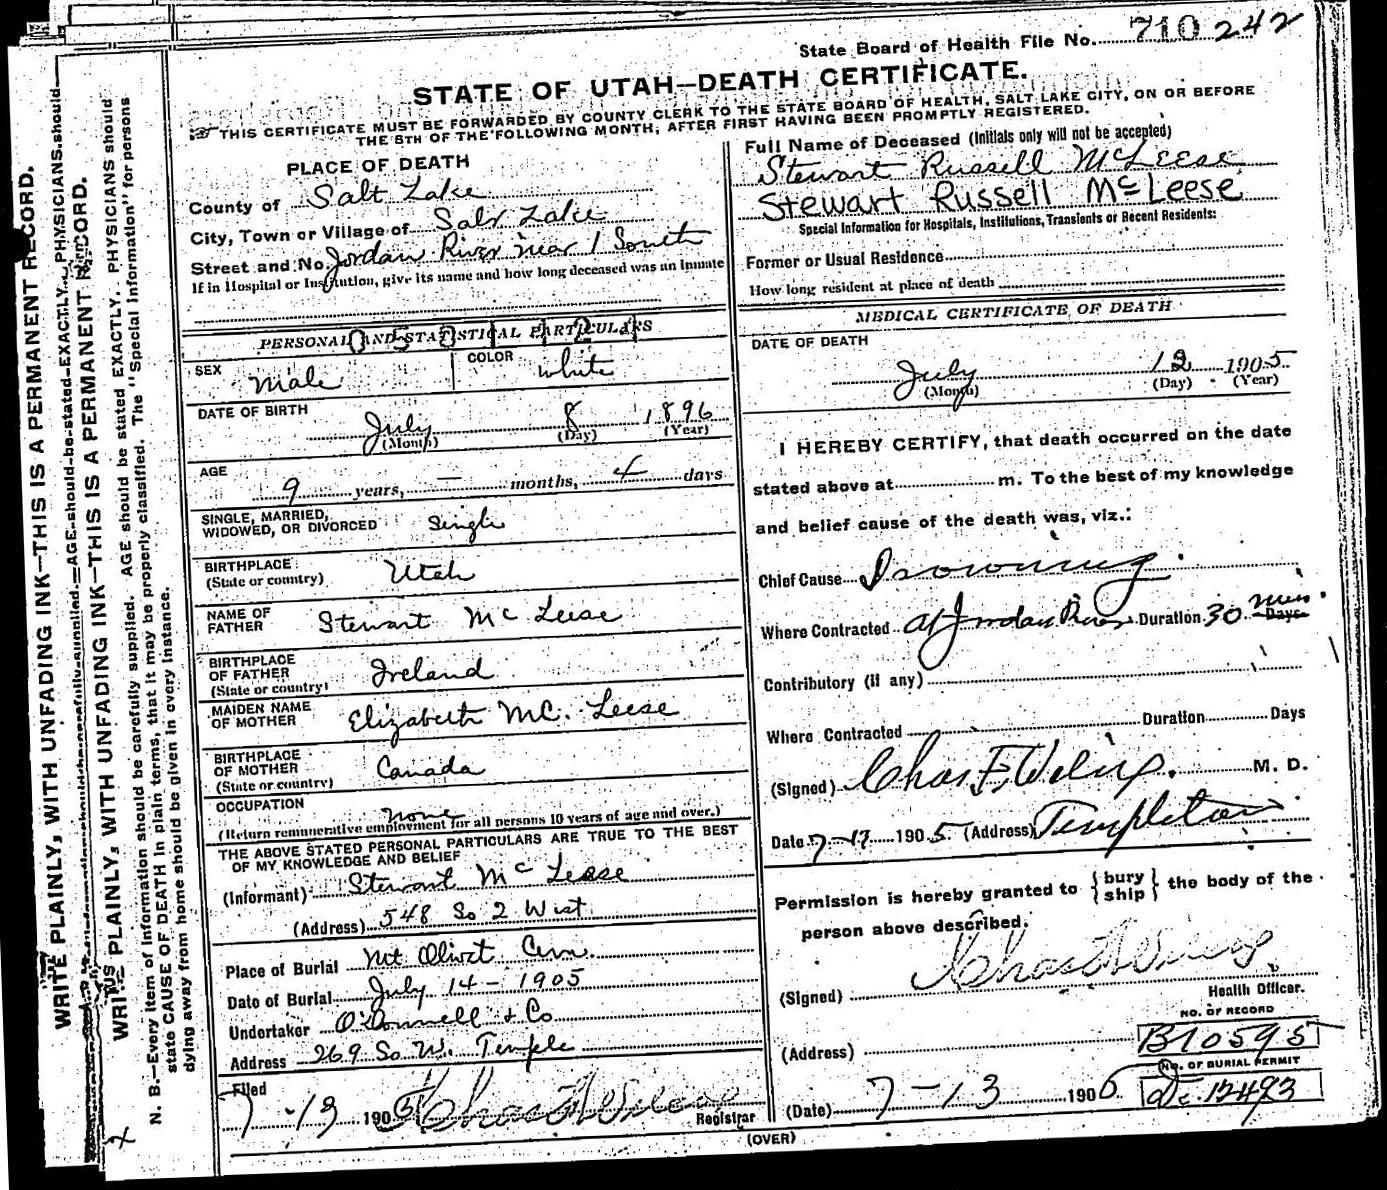 State Board of Health File No. 710 242
STATE OF UTAH—DEATH CERTIFICATE.
THIS CERTIFICATE MUST BE FORWARDED BY COUNTY CLERK TO THE STATE BOARD OF HEALTH, SALT LAKE CITY, ON OR BEFORE
THE 8TH OF THE FOLLOWING MONTH, AFTER FIRST HAVING BEEN PROMPTLY REGISTERED.
PLACE OF DEATH
County of Salt Lake
City, Town or Village of Salt Lake
Street and No. Jordan River near 1 South
If in Hospital or Institution, give its name and how long deceased was an inmate
PERSONAL AND STATISTICAL PARTICULARS
SEX Male COLOR White
DATE OF BIRTH
July 8 1896
(Month) (Day) (Year)
AGE
9 years, — months, 4 days
SINGLE, MARRIED,
WIDOWED, OR DIVORCED Single
BIRTHPLACE
(State or country) Utah
NAME OF
FATHER Stewart McLeese
BIRTHPLACE
OF FATHER
(State or country) Ireland
MAIDEN NAME
OF MOTHER Elizabeth Mc. Leese
BIRTHPLACE
OF MOTHER
(State or country) Canada
OCCUPATION none
(Return remunerative employment for all persons 10 years of age and over.)
THE ABOVE STATED PERSONAL PARTICULARS ARE TRUE TO THE BEST
OF MY KNOWLEDGE AND BELIEF
(Informant) Stewart McLeese
(Address) 548 So 2 West
Place of Burial Mt Olivet Cem.
Date of Burial July 14 - 1905
Undertaker O'Donnell & Co
Address 269 So W. Temple
Filed
7-13 1905
Registrar
(OVER)
Full Name of Deceased (Initials only will not be accepted)
Stewart Russell McLeese
Stewart Russell McLeese
Special Information for Hospitals, Institutions, Transients or Recent Residents:
Former or Usual Residence
How long resident at place of death
MEDICAL CERTIFICATE OF DEATH
DATE OF DEATH
July 12 1905
(Month) (Day) (Year)
I HEREBY CERTIFY, that death occurred on the date
stated above at m. To the best of my knowledge
and belief cause of the death was, viz.:
Chief Cause Drowning
Where Contracted at Jordan River Duration 30 min. Days
Contributory (if any)
Where Contracted Duration Days
(Signed) M. D.
Date 7-17 1905 (Address) Templeton
Permission is hereby granted to {bury ship} the body of the
person above described.
(Signed)
Health Officer.
NO. OF RECORD
B10595
(Address)
NO. OF BURIAL PERMIT
12493
(Date) 7-13 1905
WRITE PLAINLY, WITH UNFADING INK—THIS IS A PERMANENT RECORD.
WRITE PLAINLY, WITH UNFADING INK—THIS IS A PERMANENT RECORD.
N. B.—Every item of information should be carefully supplied. AGE should be stated EXACTLY. PHYSICIANS should
state CAUSE OF DEATH in plain terms, that it may be properly classified. The "Special Information" for persons
dying away from home should be given in every instance.